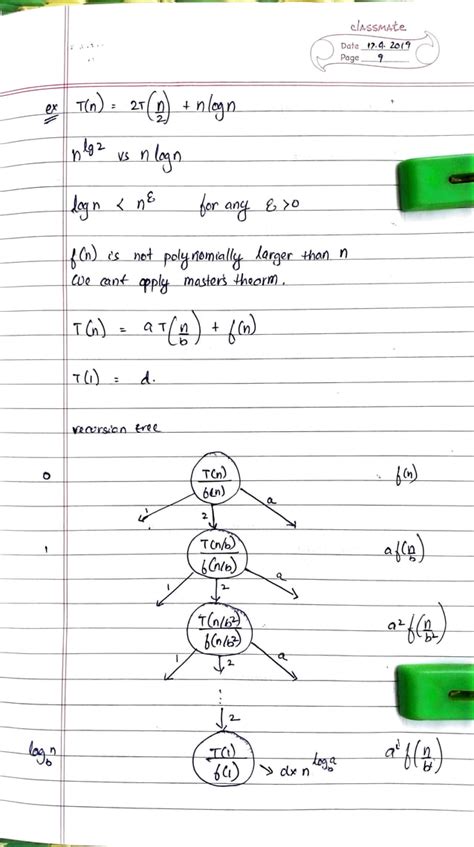 classmate
Date 17.9.2019
Page 9
ex T(n) = 2T(n/2) + n log n
n^lg2 vs n log n
log n < n^ε for any ε >0
f(n) is not polynomially larger than n
We cant apply masters theorm.
T(n) = a T(n/b) + f(n)
T(1) = d.
recursion tree
0 T(n) f(n) f(n)
1 2 a
1 T(n/b) f(n/b) a f(n/b)
1 2 a
T(n/b²) f(n/b²) a² f(n/b²)
1 2 a
⋮
2
log_b n T(1) f(1) → d×n^log_b a a^i f(n/b^i)